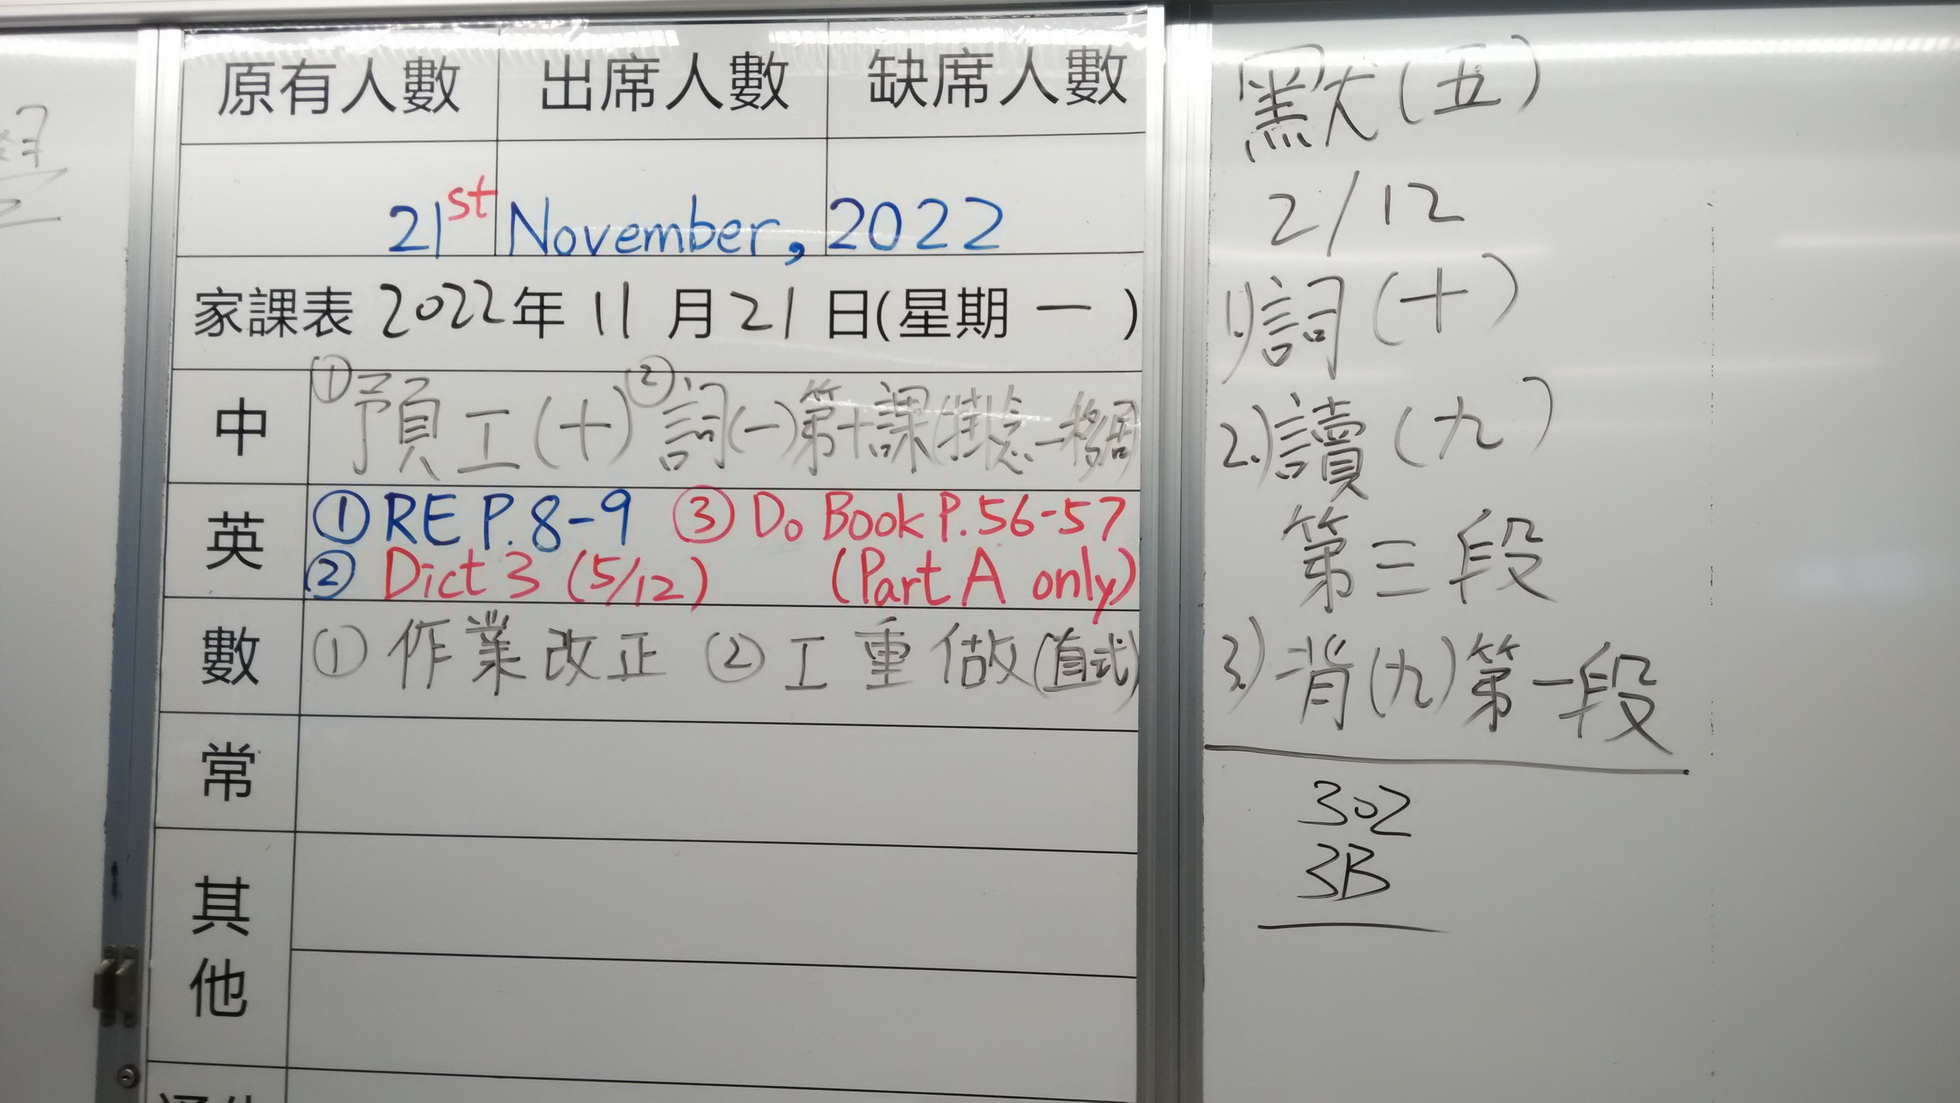 原有人數 出席人數 缺席人數
21st November, 2022
家課表 2022年 11 月 21 日(星期 一 )
中 ①預工(十) ②詞(一)第十課(掛念—移居)
英 ①RE P.8-9 ③Do Book P.56-57
②Dict 3 (5/12) (Part A only)
數 ①作業改正 ②工重做(直式)
常
其他
默(五)
2/12
1)詞(十)
2.)讀(九)
第三段
3.)背(九)第一段
302
3B